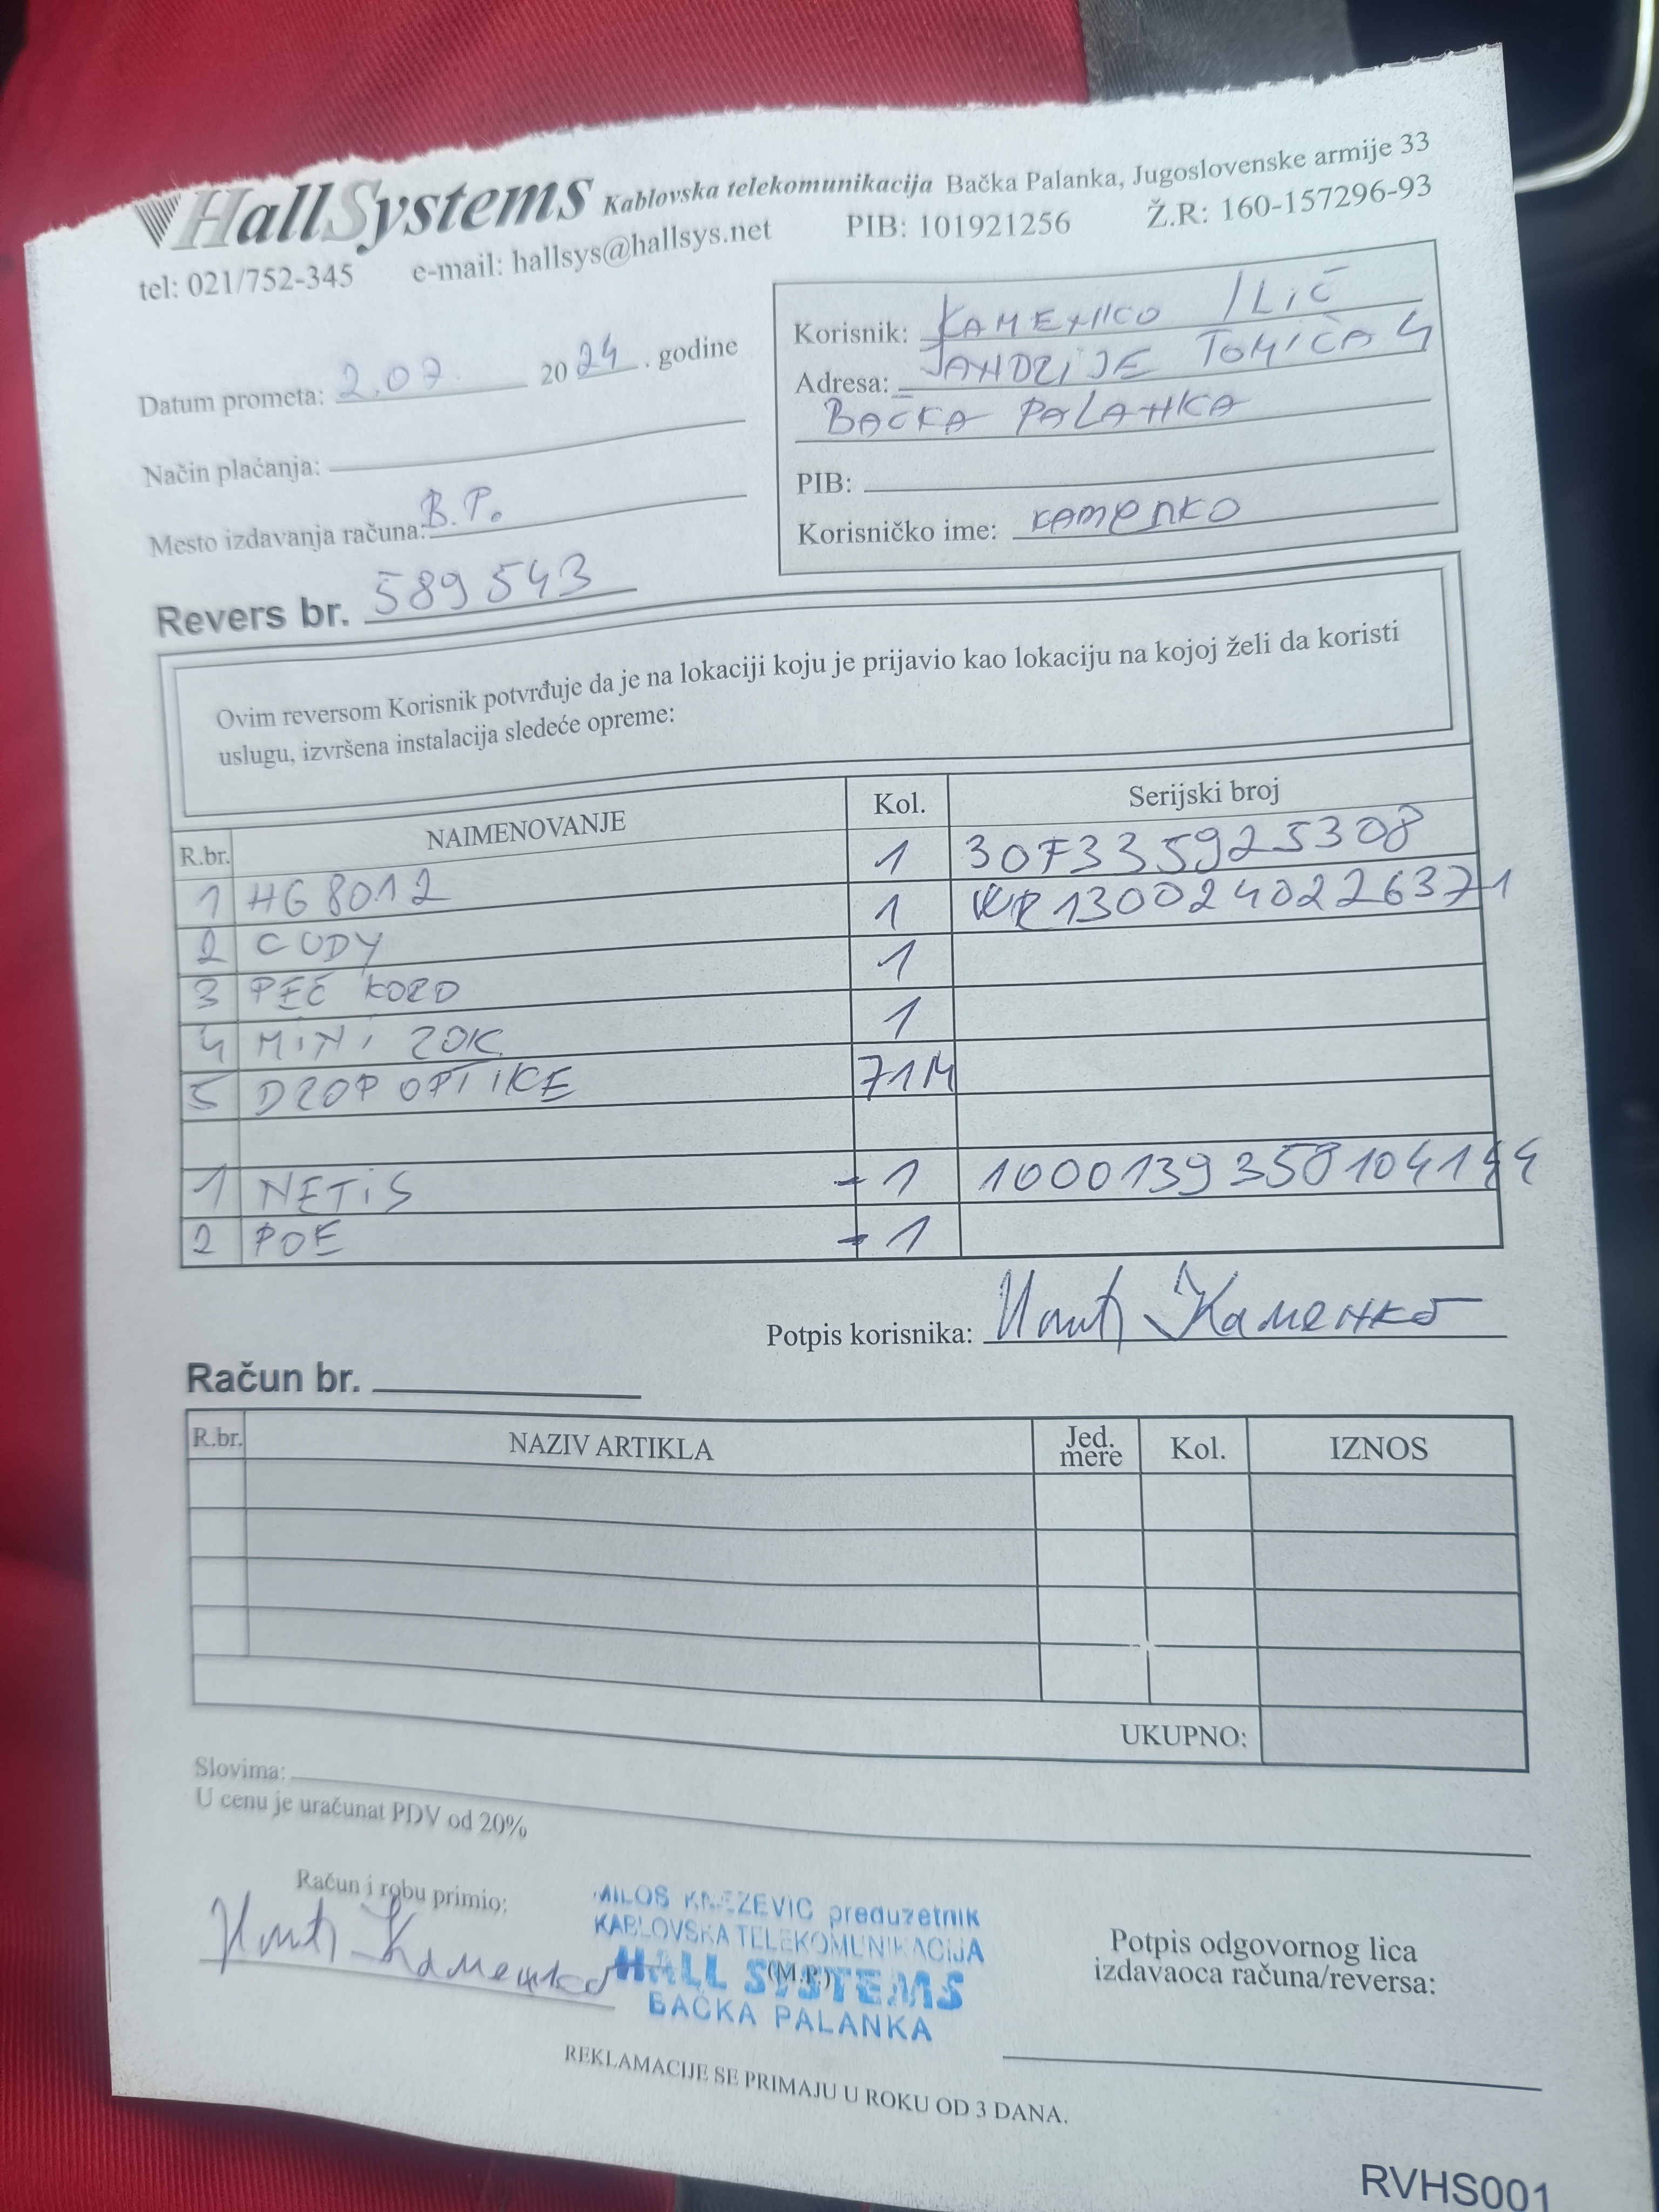 HallSystems Kablovska telekomunikacija Bačka Palanka, Jugoslovenske armije 33
tel: 021/752-345 e-mail: hallsys@hallsys.net PIB: 101921256 Ž.R: 160-157296-93
Datum prometa: 2.07. 2024. godine
Način plaćanja:
Mesto izdavanja računa: B.P.
Korisnik: KAMENKO ILIĆ
Adresa: JANDRIJE TOMIĆA 4
BACKA PALANKA
PIB:
Korisničko ime: kamenko
Revers br. 589543
Ovim reversom Korisnik potvrđuje da je na lokaciji koju je prijavio kao lokaciju na kojoj želi da koristi
uslugu, izvršena instalacija sledeće opreme:
R.br. NAIMENOVANJE Kol. Serijski broj
1 HG 8012 1 30F335925308
2 CUDY 1
3 PEČ KORD 1
4 MINI ROK 1
5 DROP OPTIKE 71M
1 NETIS - 1
2 POE - 1
Potpis korisnika: Илић Каменко
Račun br.
R.br. NAZIV ARTIKLA Jed. mere Kol. IZNOS
UKUPNO:
Slovima:
U cenu je uračunat PDV od 20%
Račun i robu primio:
Илић Каменко
MILOS KNEZEVIC preduzetnik
KABLOVSKA TELEKOMUNIKACIJA
HALL SYSTEMS
(M.P.)
BAČKA PALANKA
Potpis odgovornog lica
izdavaoca računa/reversa:
REKLAMACIJE SE PRIMAJU U ROKU OD 3 DANA.
RVHS001